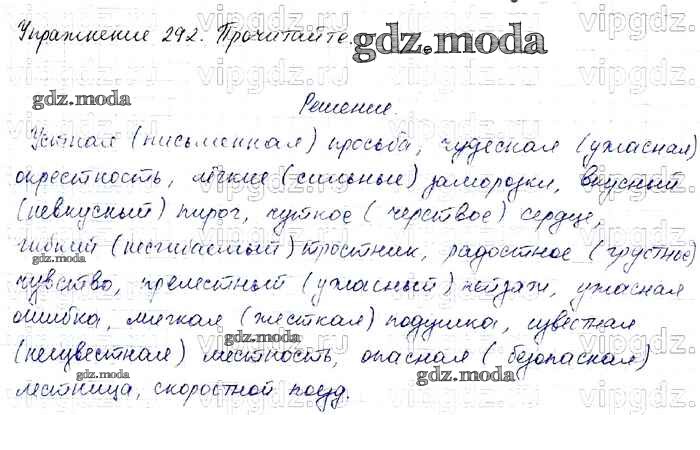 Упражнение 292. Прочитайте.
gdz.moda
gdz.moda
Решение.
Устная (письменная) просьба, чудесная (ужасная)
окрестность, лёгкие (сильные) заморозки, вкусный
(невкусный) пирог, чуткое (черствое) сердце,
гибкий (несгибаемый) тростник, радостное (грустное)
gdz.moda
чувство, прелестный (ужасный) пейзаж, ужасная
ошибка, мягкая (жесткая) подушка, известная
gdz.moda
(неизвестная) местность, опасная (безопасная)
gdz.moda
лестница, скоростной поезд.
vipgdz.com